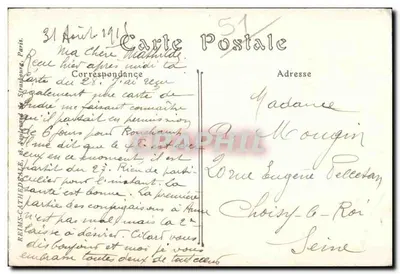 31 Août 191
51
Carte Postale
Ma Chère Mathilde
Reçu hier après midi la
Correspondance
Adresse
carte du 28. J'ai reçu
également une carte de
André me faisant connaître
qu'il partait en permission
de 6 jours pour
me dit que le
eux en ce moment, il est
parti du 27. Rien de parti-
culier pour l'instant. La
santé est bonne. La première
partie des conjugaisons à Anna
n'est pas mal mais la 2e
laisse à désirer. Citard vous
dis bonjour et moi je vous
embrasse toutes deux de tout cœur
Madame
Mougin
20 rue Eugène Pelletan
Choisy-le-Roi
Seine
REIMS-CATHEDRALE
Strasbourg, Paris.
CPR